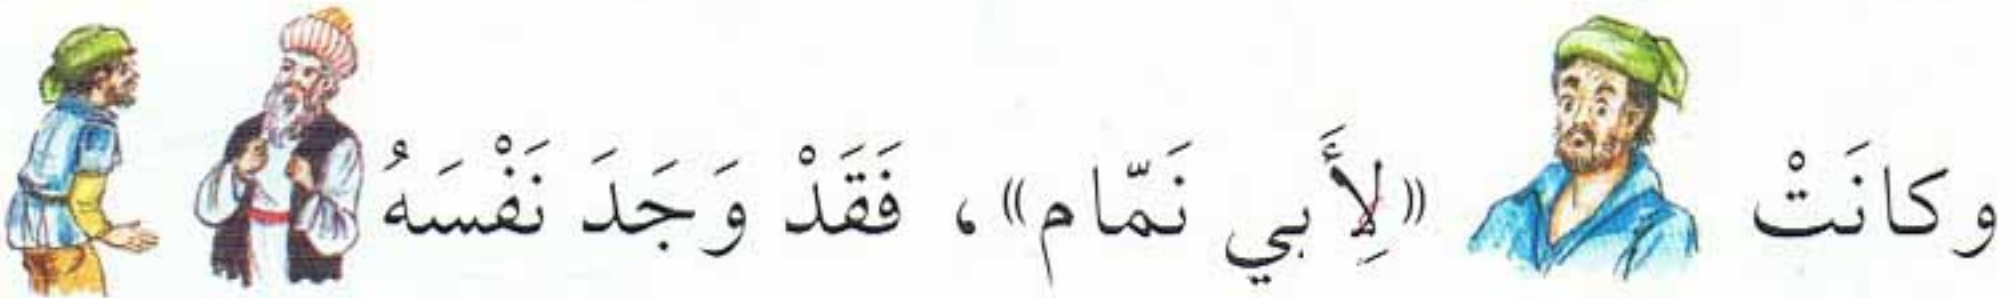 وكانَتْ «لِأَبي نَمّام»، فَقَدْ وَجَدَ نَفْسَهُ